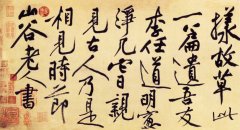 樣故草此
一篇遺吾友
李任道明窓
淨几它日親
見古人乃是
相見時節
山谷老人書